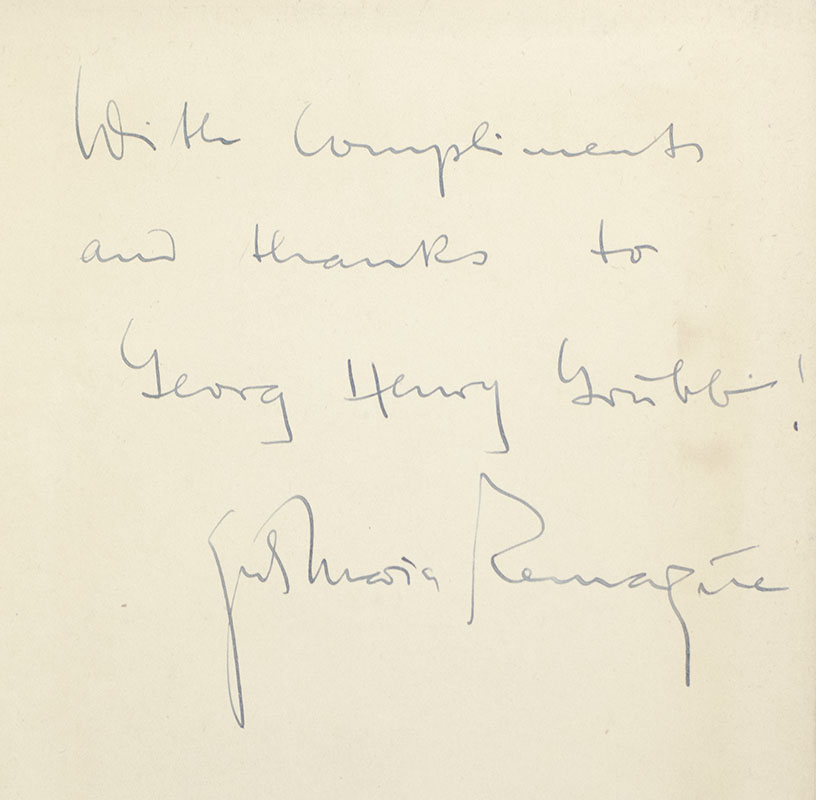 With compliments
and thanks to
Georg Henry Grubb!
Erich Maria Remarque